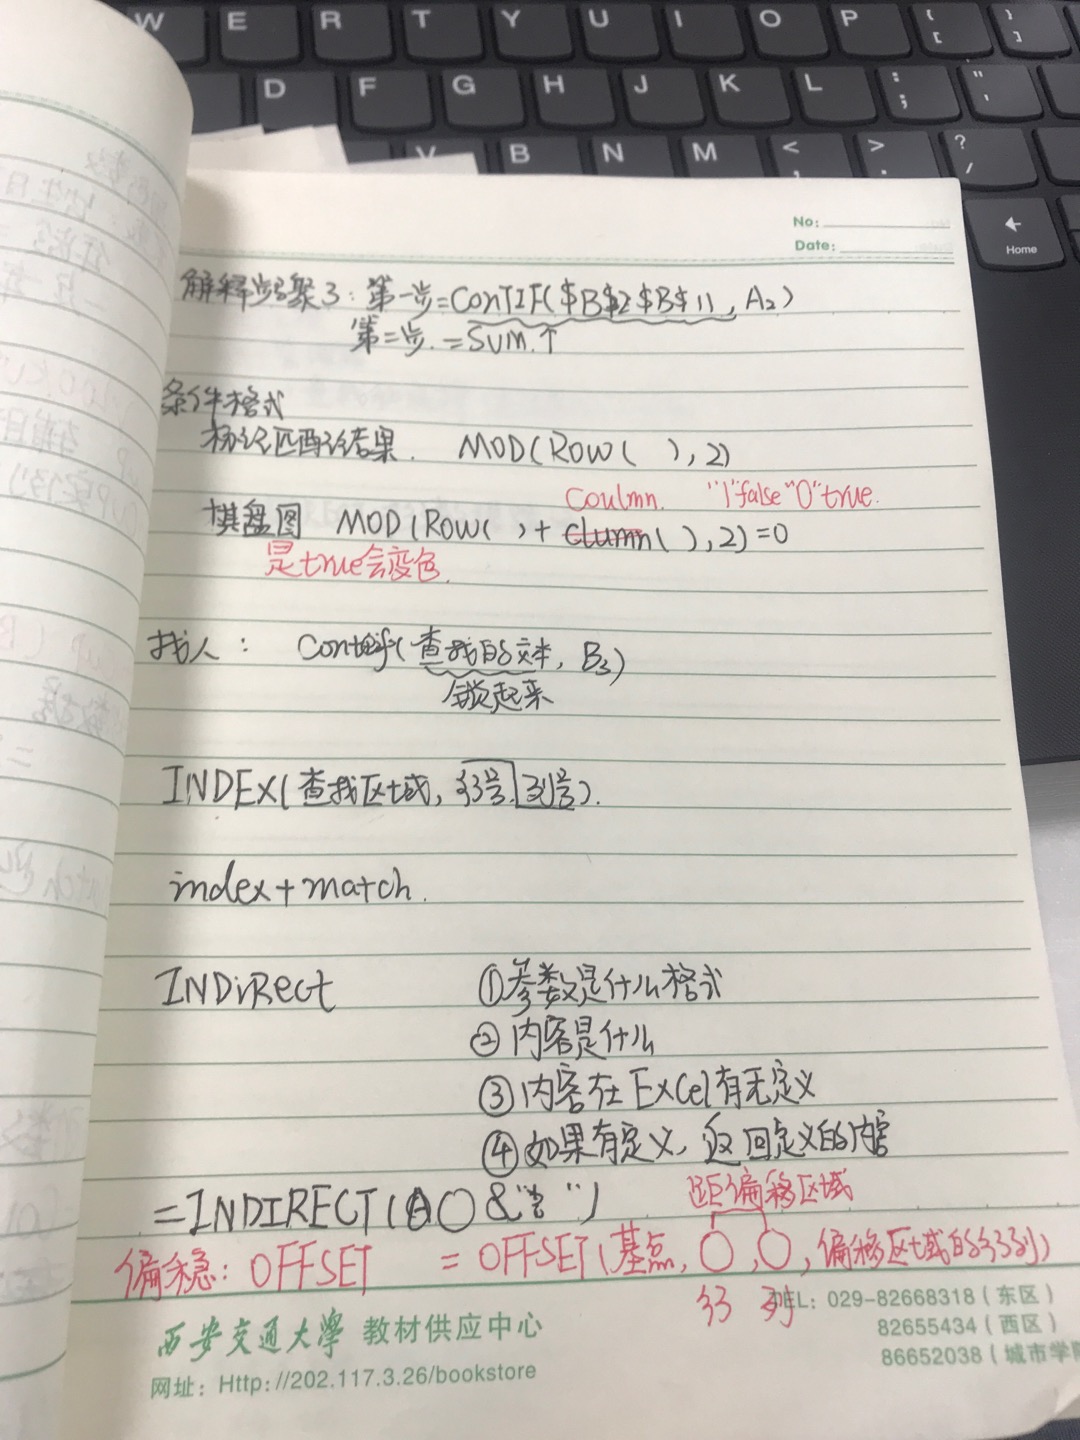 W E R T Y U I O P { [ } ]
D F G H J K L : ; " '
V B N M < , > . ? /
Home
No:
Date:
解释步骤3: 第一步=ConTIF($B$2$B$11, A2)
第二步. =SUM.↑
条件格式
标识匹配结果. MOD(ROW( ),2)
Coulmn. "1"false"0"true.
棋盘图 MOD(ROW( )+Clumn( ),2)=0
是true会变色.
找人: Contif(查找的文本, B3)
锁起来
INDEX(查找区域, 行号, 列号).
index+match.
INDiRect ①参数是什么格式
②内容是什么
③内容在Excel有无定义
④如果有定义, 返回定义的内容
=INDIRECT( ○&" ")
距偏移区域
偏移: OFFSET =OFFSET(基点, ○, ○, 偏移区域的行列)
行 列
西安交通大学 教材供应中心 TEL: 029-82668318(东区)
82655434(西区)
网址: Http://202.117.3.26/bookstore 86652038(城市学院